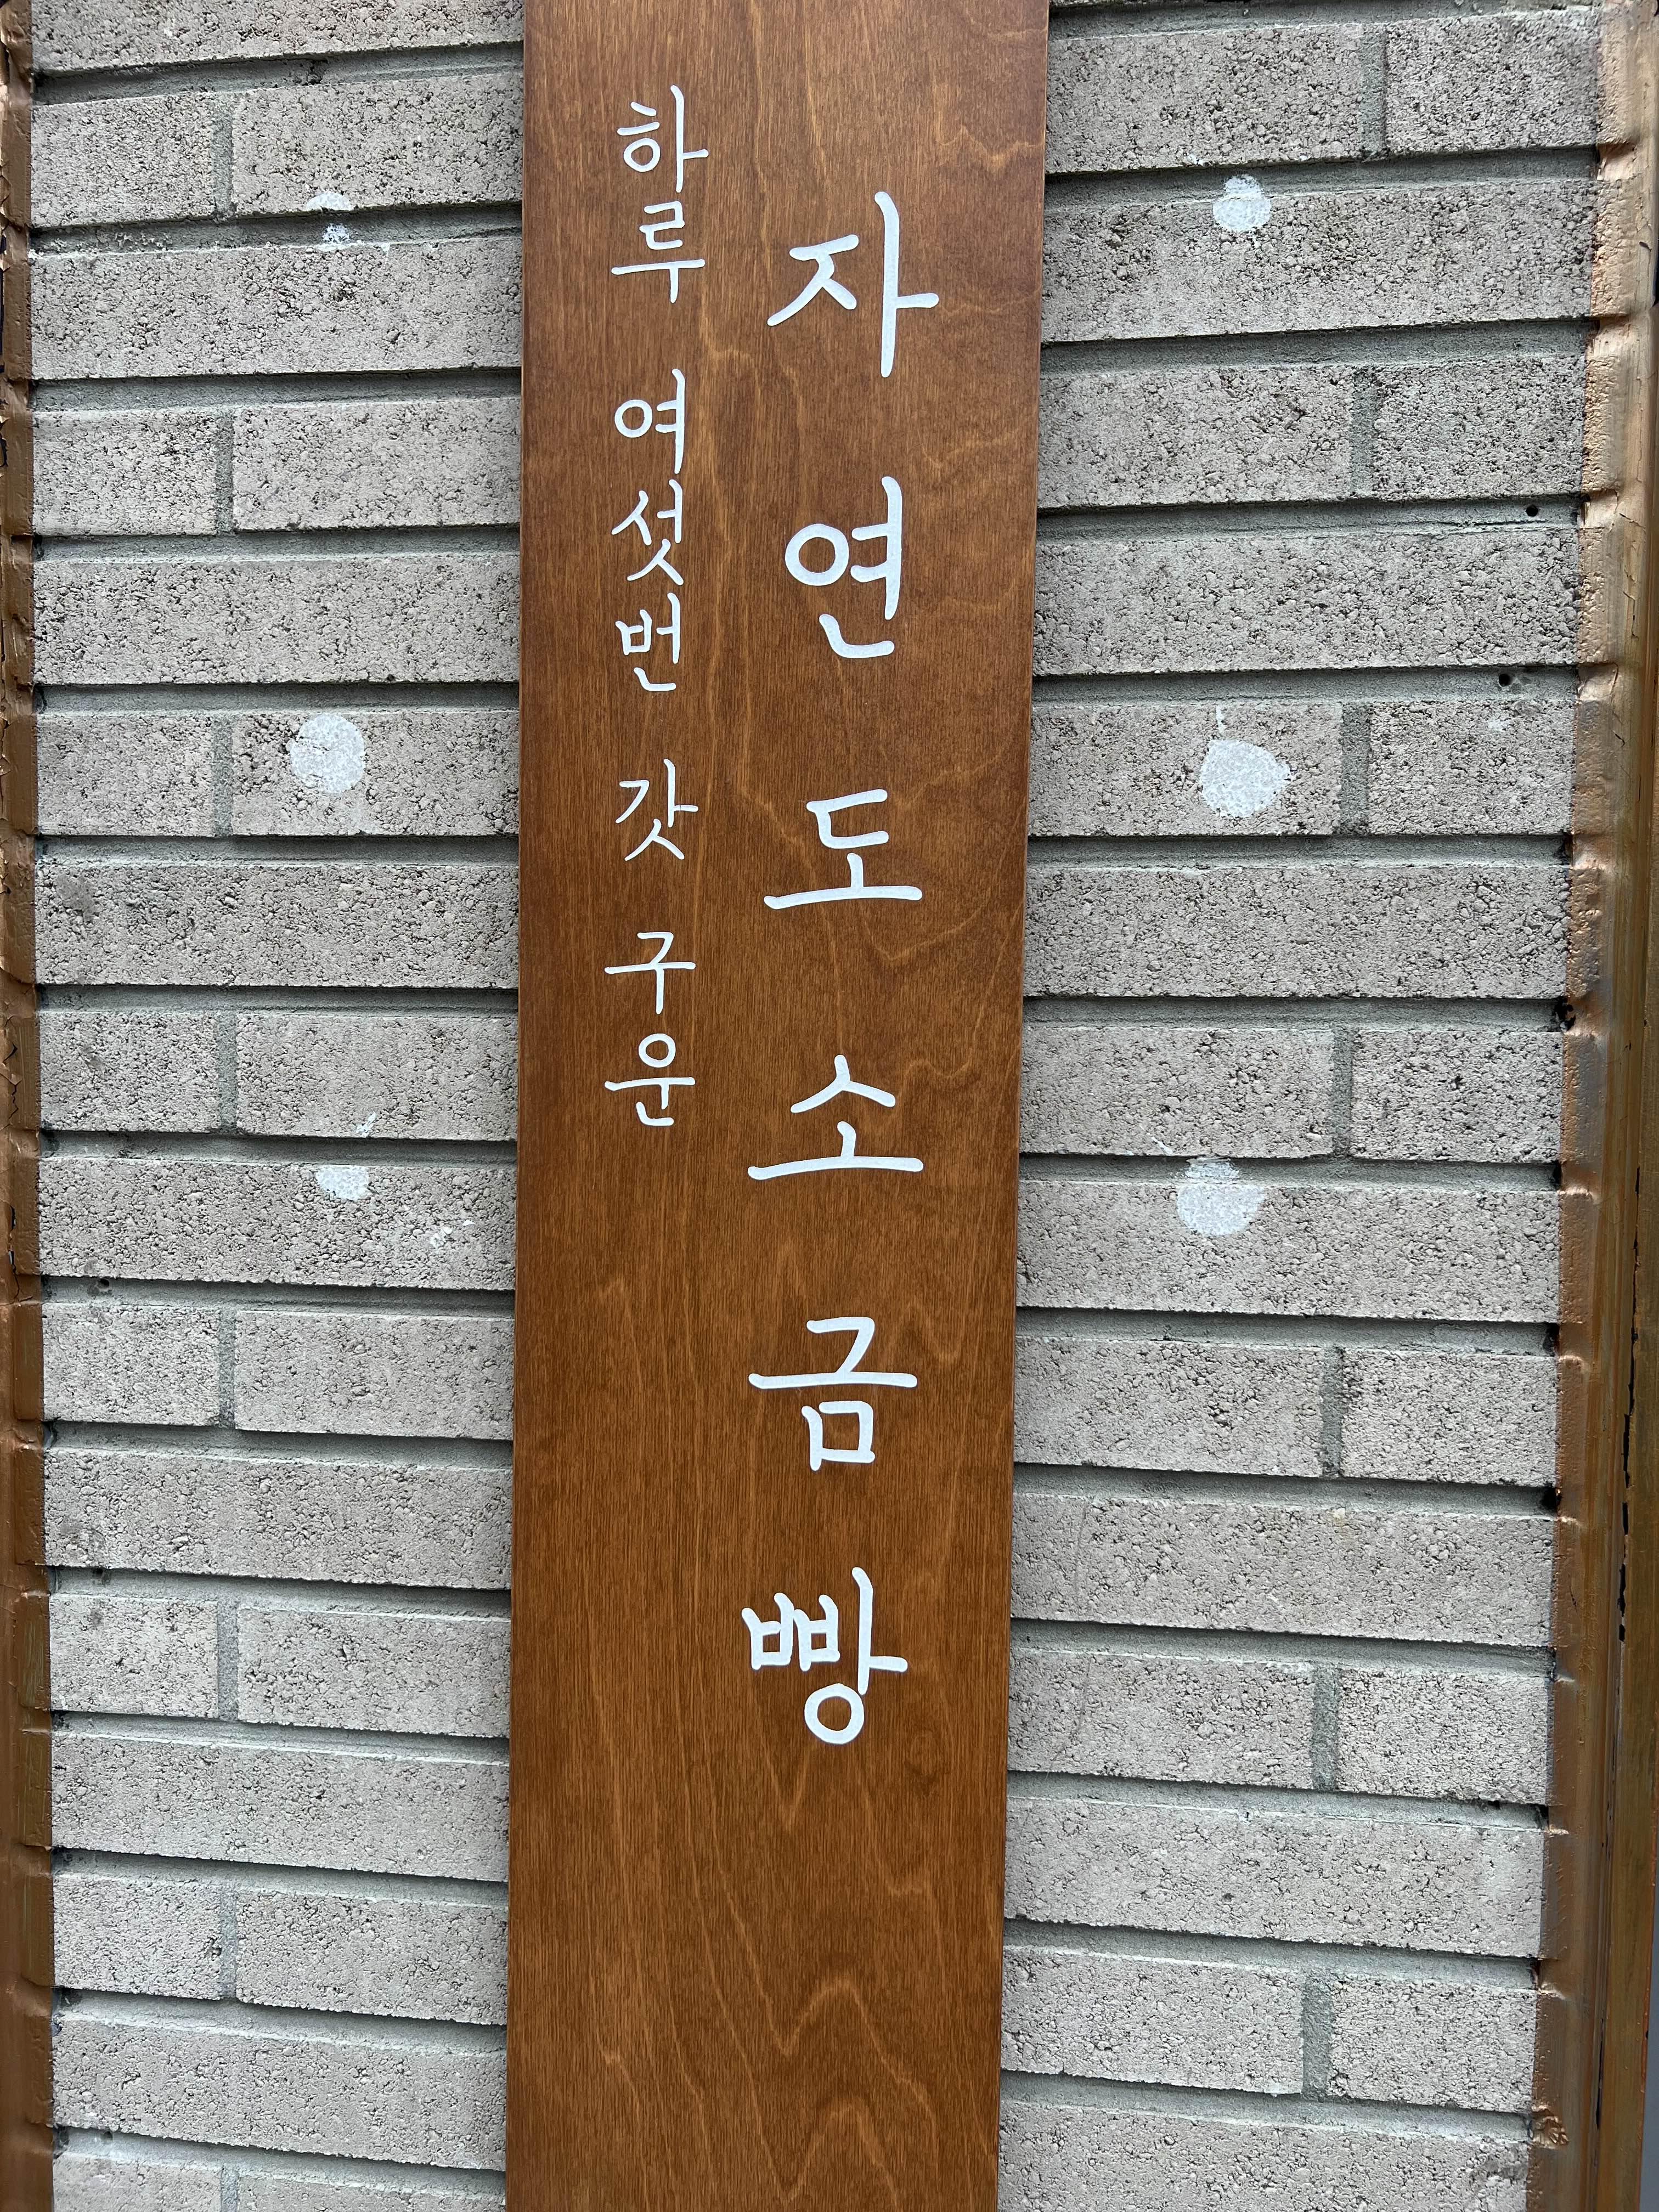 하루 여섯번 갓 구운
자연도소금빵